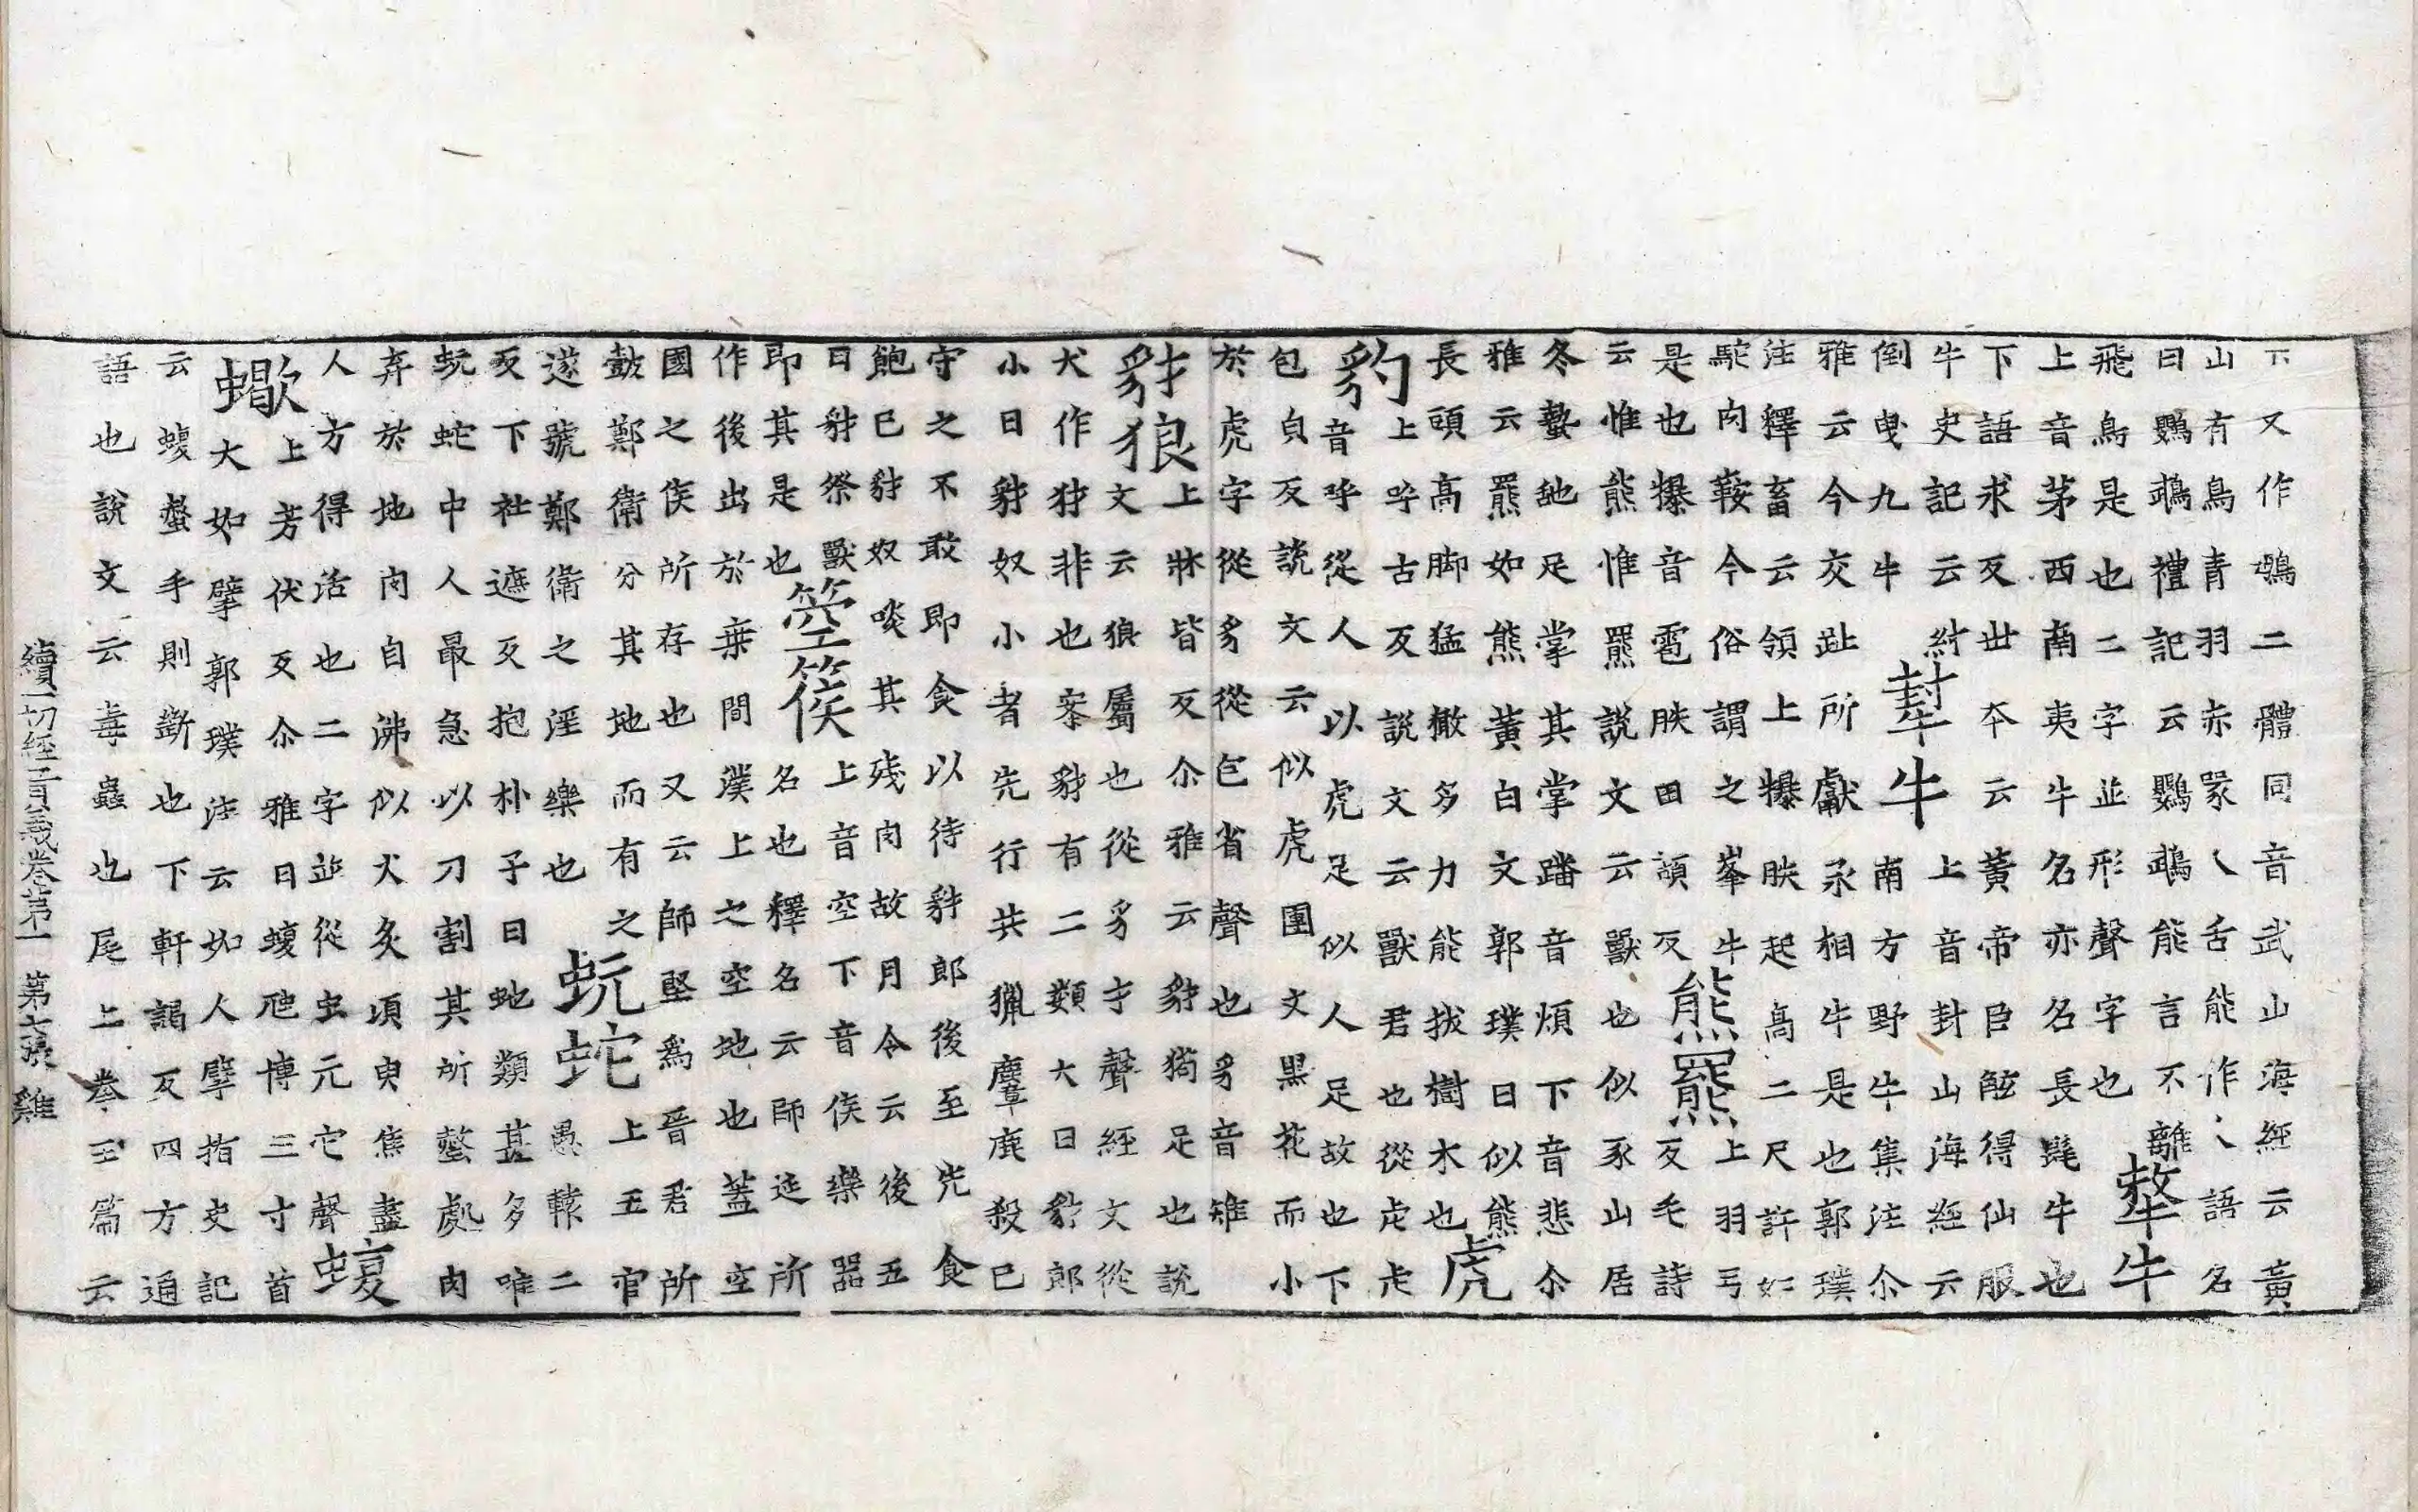 下又作䳇二體同音武山海經云黃
山有鳥青羽赤喙人舌能作人語名
曰鸚䳇禮記云鸚䳇能言不離
飛鳥是也二字並形聲字也
犛牛
上音茅西南夷牛名亦名長髦牛也
下語求反世本云黃帝臣胲得仙服
牛史記云紂
倒曳九牛
犎牛
上音封山海經云
南方野牛集注尒
雅云今交趾所獻丞相牛是也郭璞
注釋畜云領上犦胅起高二尺許如
駝肉鞍今俗謂之峯牛
是也犦音雹胅田頡反
熊羆
上羽弓
反毛詩
云惟熊惟羆說文云獸也似豕山居
冬蟄舐足掌其掌蹯音煩下音悲尒
雅云羆如熊黃白文郭璞曰似熊
長頭高脚猛憨多力能拔樹木也
虎
豹
上呼古反說文云獸君也從虍虍
音呼從人以虎足似人足故也下
包皃反說文云似虎圓文黑花而小
於虎字從豸從包省聲也豸音雉
豺狼
上牀皆反尒雅云豺狗足也說
文云狼屬也從豸才聲經文從
犬作犲非也案豺有二類大曰豺郎
小曰豺奴小者先行共獵麞鹿殺已
守之不敢即食以待豺郎後至先食
飽已豺奴啖其殘肉故月令云後五
日豺祭獸
即其是也
箜篌
上音空下音侯樂器
名也釋名云師延所
作後出於桒間濮上之空地也蓋空
國之侯所存也又云師堅爲晉君所
鼓鄭衛分其地而有之
遂號鄭衛之淫樂也
蚖蛇
上五官
反下社遮反抱朴子曰虵類甚多唯
蚖蛇中人最急以刀割其所螫處肉
弃於地肉自沸似火炙須臾焦盡
人方得活也二字並從虫元它聲
蝮
蠍
上芳伏反尒雅曰蝮虺博三寸首
大如擘郭璞注云如人擘指史記
云蝮螫手則斷也下軒謁反四方通
語也說文云毒蟲也尾上卷玉篇云
續一切經音義卷第一 第七張 雞